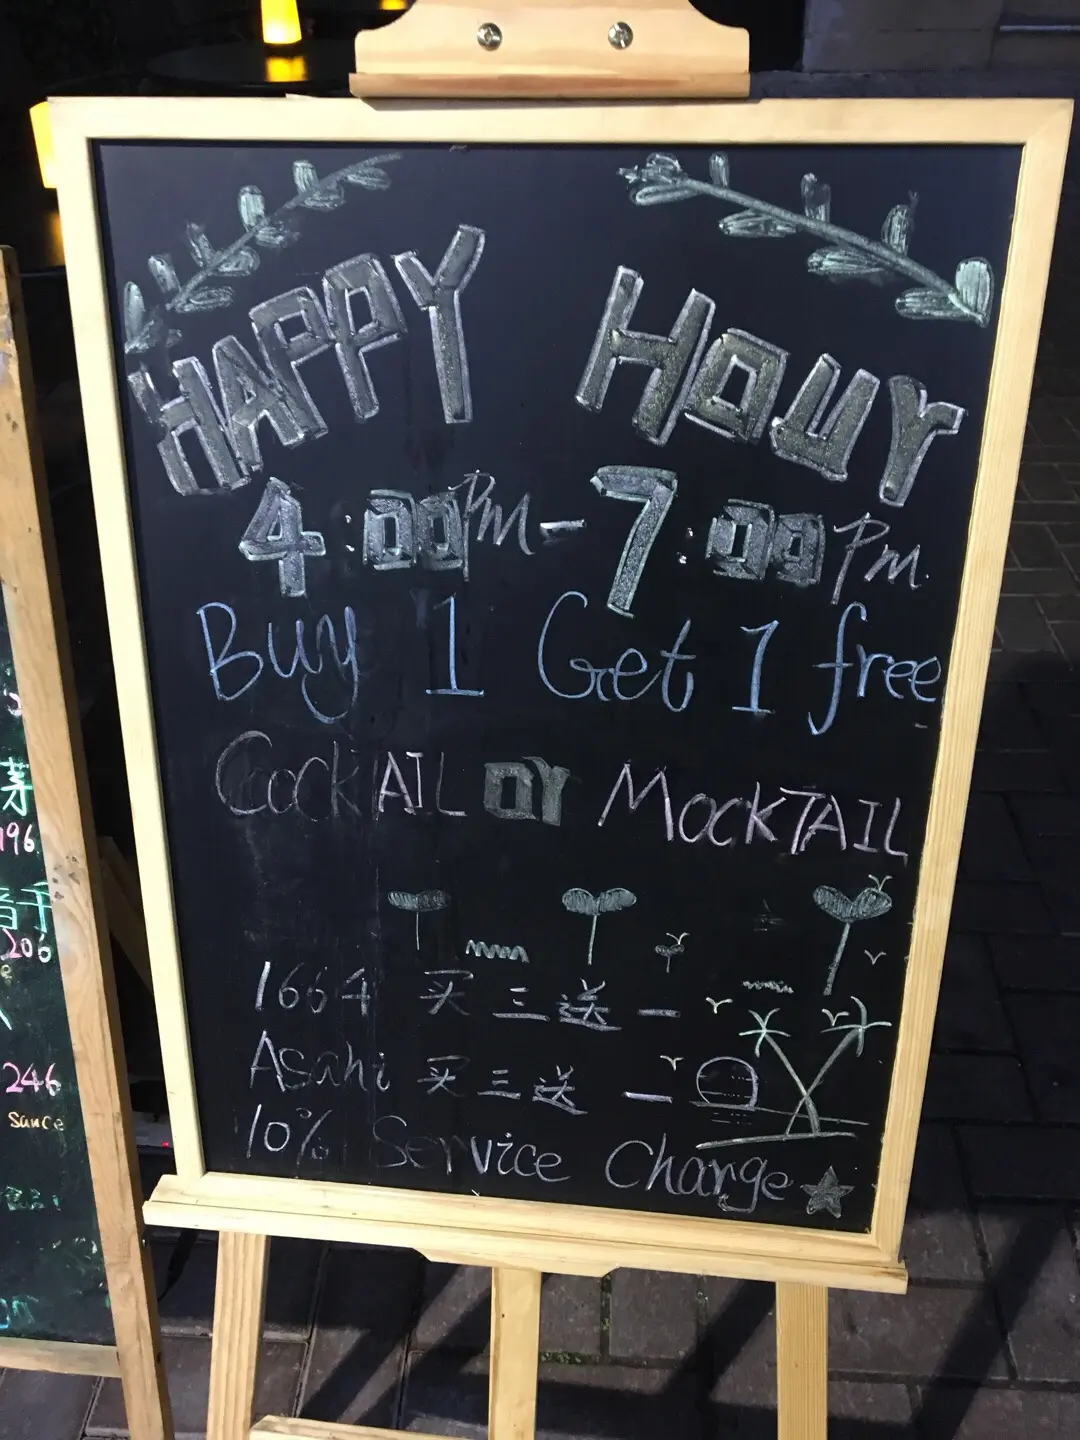 HAPPY HOUr
4:00Pm - 7:00Pm
Buy 1 Get 1 free
CockTAIL Or MOCKTAIL
1664 买三送一
Asahi 买三送一
10% Service Charge
菜
196
206
246
sauce